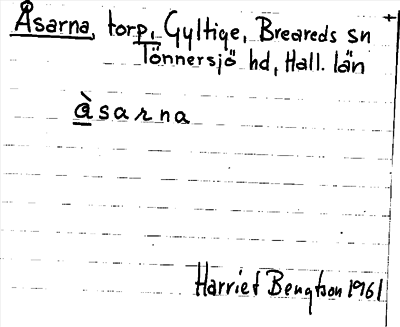 Åsarna, torp, Gyltige, Breareds sn
Tönnersjö hd, Hall. län
àsarna
Harriet Bengtson 1961